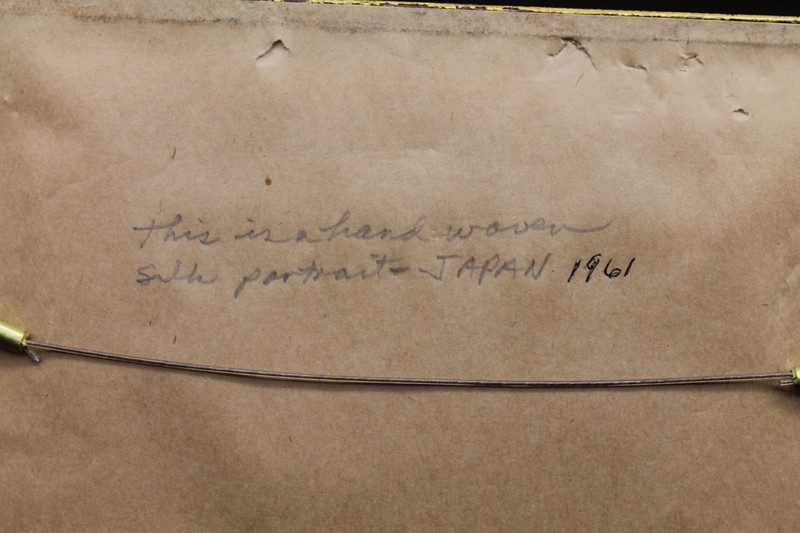 This is a hand woven
silk portrait - JAPAN 1961